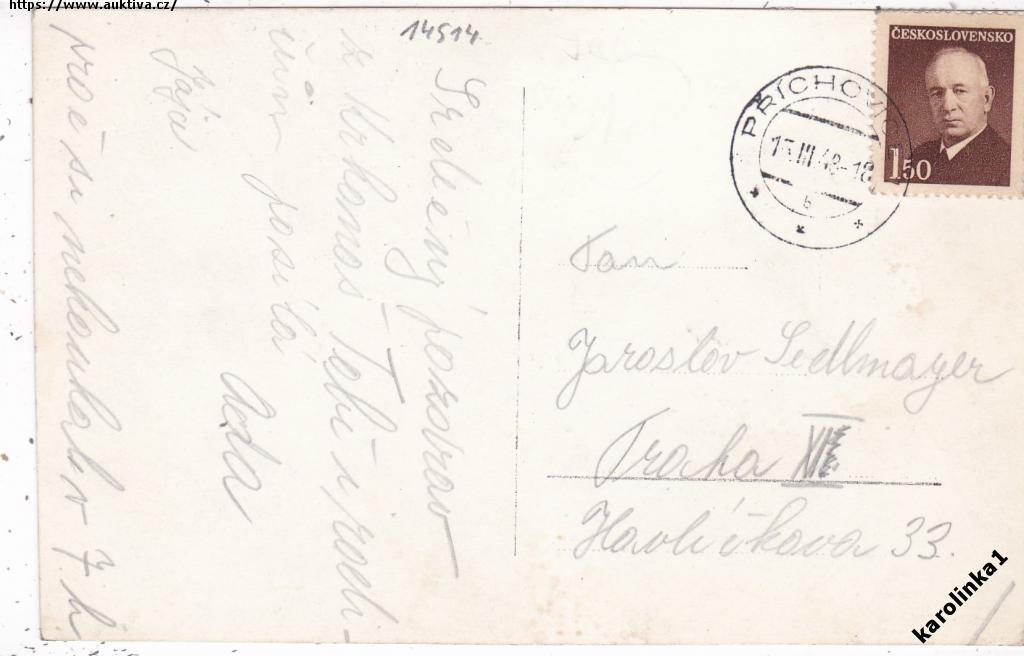 https://www.auktiva.cz/
14514
Srdečný pozdrav
z Krkonoš Tobě i rodi-
čům posílá
Ada
Jája
proč si nekoukal v 7 h.
ČESKOSLOVENSKO
1.50
PŘÍCHOVICE
III.48-18
b
Pan
Jaroslav Sedlmayer
Praha XII
Havlíčkova 33.
karolinka1